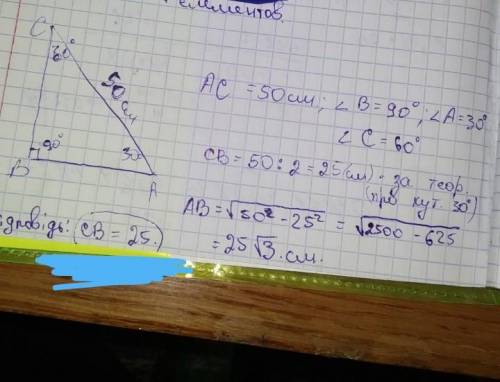 елементов.
C
60°
50 см
90°
30°
B
A
AC = 50 см; ∠B = 90°; ∠A = 30°
∠C = 60°
CB = 50 : 2 = 25 (см) - за теор.
(про кут. 30°)
AB = √50² - 25² = √2500 - 625
= 25√3 . см.
ідповідь: CB = 25.